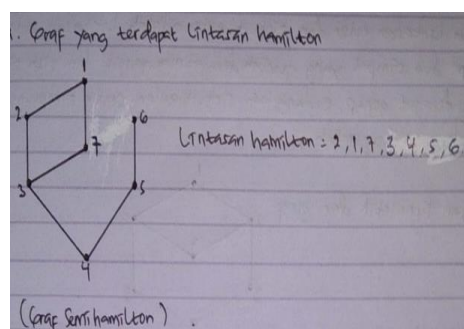 . Graf yang terdapat Lintasan hamilton
1
2
6
7
Lintasan hamilton : 2, 1, 7, 3, 4, 5, 6
3
5
4
(Graf Semihamilton)